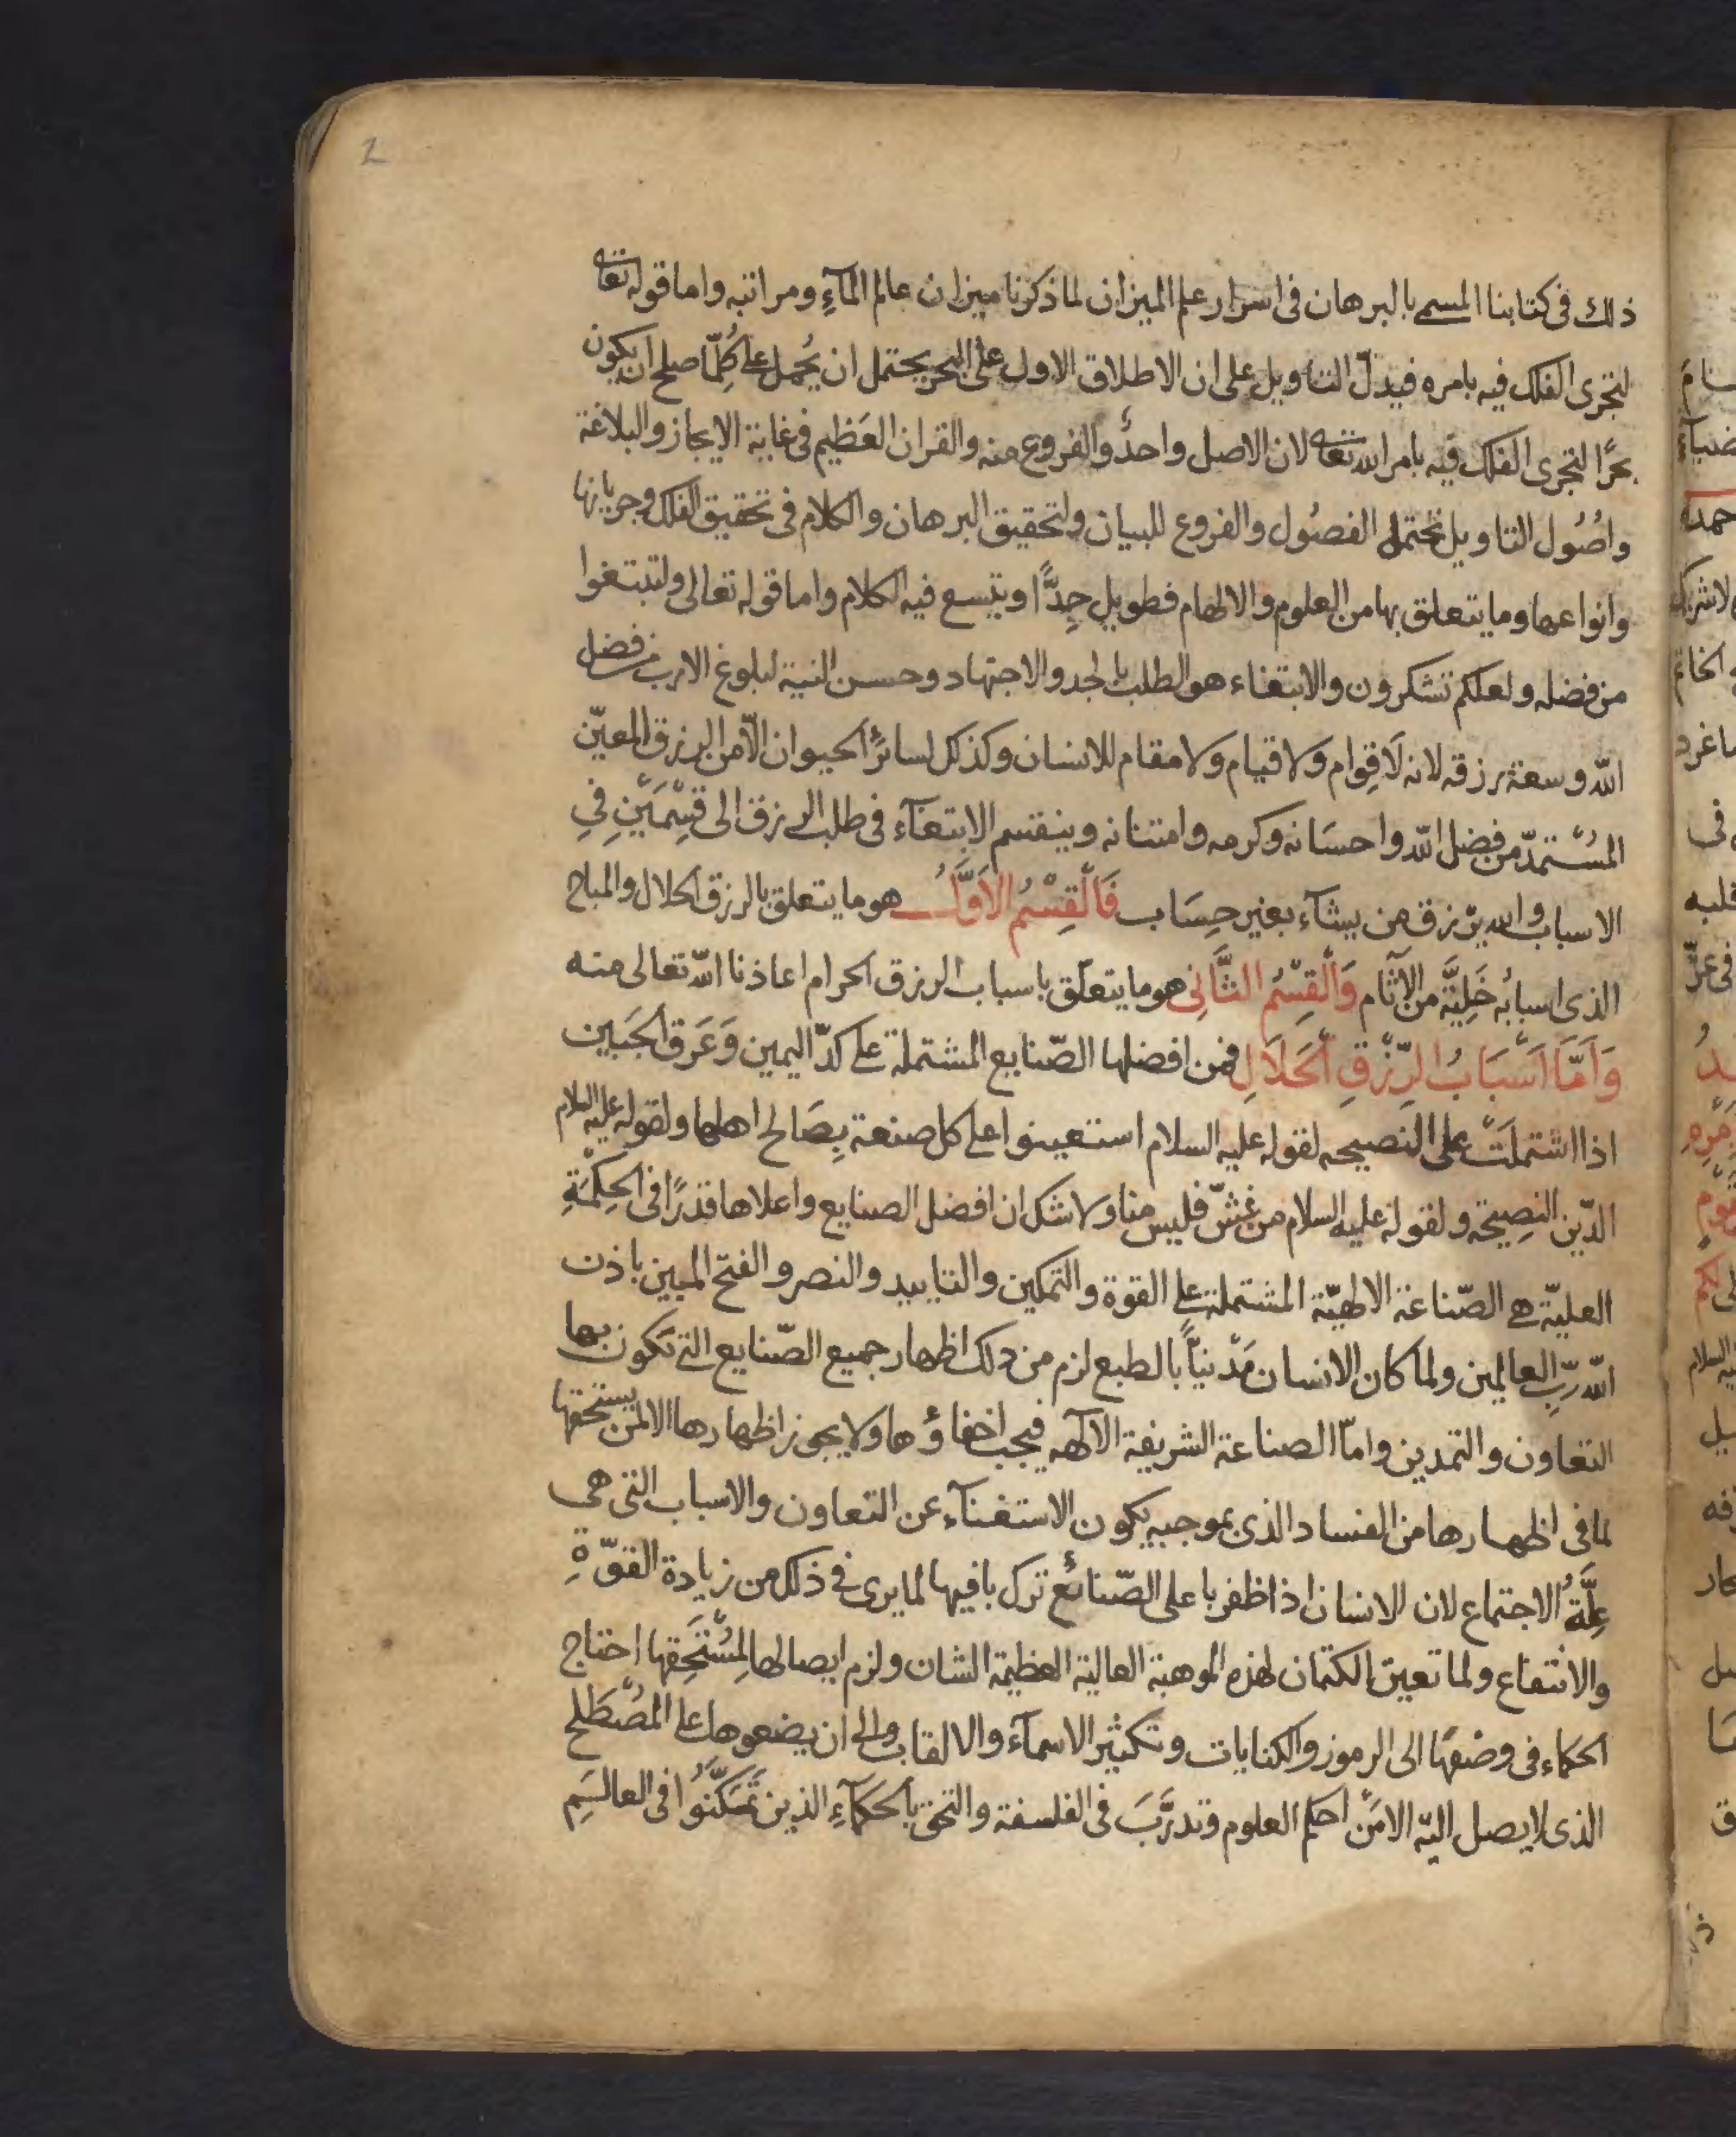 2
ذلك فى كتابنا المسمى بالبرهان فى اسرار علم الميزان لما ذكرنا ميزان عالم المآءِ ومراتبه واما قوله تعالى
لتجرى الفلك فيه بامره فيدلّ التاويل على ان الاطلاق الاول على البحر يحتمل ان يُحمل على كِلّما صلح ان يكون
بحرًا لتجرى الفلك فيه بامر الله تعالى لان الاصل واحدٌ والفروع منه والقران العَظيم فى غاية الايجاز والبلاغة
واصُول التاويل تحتمل الفصُول والفروع للبيان ولتحقيق البرهان والكلام فى تحقيق الفلك وجريانها
وانواعها وما يتعلق بها من العلوم والالهام فطويل جِدًّا ويتسع فيه الكلام واما قوله تعالى ولتبتغوا
من فضله ولعلكم تشكرون والابتغاء هو الطلب بالجد والاجتهاد وحسن النية لبلوغ الارب من فضل
الله وسعة رزقه لانه لَا قِوام ولا قيام ولا مقام للانسان وكذلك لسائرُ الحيوان الّا من الرزق المعيّن
المسْتمدّ من فضل الله واحسَانه وكرمه وامتنانه وينقسم الابتغآء فى طلب الرزق الى قِسْمَيْنِ فِى
الاسباب والله يرزق من يشآء بغير حِسَاب فَالْقِسْمُ الاَوَّلُ هو ما يتعلق بالرزق الحلال والمباح
الذى اسبابُه خَلِيَّة من الآثام وَالْقِسْمُ الثَّانِى هو ما يتعلّق باسباب الرزق الحرام اعاذنا اللّه تعالى منه
وَاَمَّا اَسْبَابُ الرِّزْقِ الْحَلَالِ فمن افضلها الصّنايع المشتملة على كدّ اليمين وَعَرَق الجَبين
اذا اشتملَتْ على النصيحه لقوله عليه السلام استعينوا على كل صنعة بِصَالح اهلها ولقوله عليه السلام
الدّين النصِيحَة ولقوله عليه السلام من غشّ فليس منا ولا شك ان افضل الصنايع واعلاها قدرًا فى الحِكْمَةِ
العليّة هى الصّناعة الالهيّة المشتملة على القوة والتمكين والتاييد والنصر والفتح المبين باذن
اللّه رَبّ العالمين ولما كان الانسان مَدْنيّاً بالطبع لزم من ذلك اظهار جميع الصّنايع التى تكون بها
التعاون والتمدين وامّا الصناعة الشريفة الآلهه فيجب اخفاؤها ولا يجوز اظهارها الا لمن يستحقها
لما فى اظهارها من الفساد الذى بموجبه يكون الاستغنآء عن التعاون والاسباب التى هى
عِلَّةُ الاجتماع لان الانسان اذا ظفر باعلى الصّنائع ترك باقيها لما يرى فى ذلك من زيادة القوّةِ
والانتفاع ولما تعين الكتمان لهذه الموهبة العالية العظيمة الشان ولزم ايصالها لِمُسْتَحِقها احتاج
الحكماء فى وضْعهَا الى الرموز والكنايات وتكثير الاسمآء والالقاب والى ان يضعوها على المُصْطَلح
الذى لا يصل اليّه الا مَن احكم العلوم وتدرَّبَ فى الفلسفة والتحق بالحكمآءِ الذين تمكَّنُوا فى العالَمِ